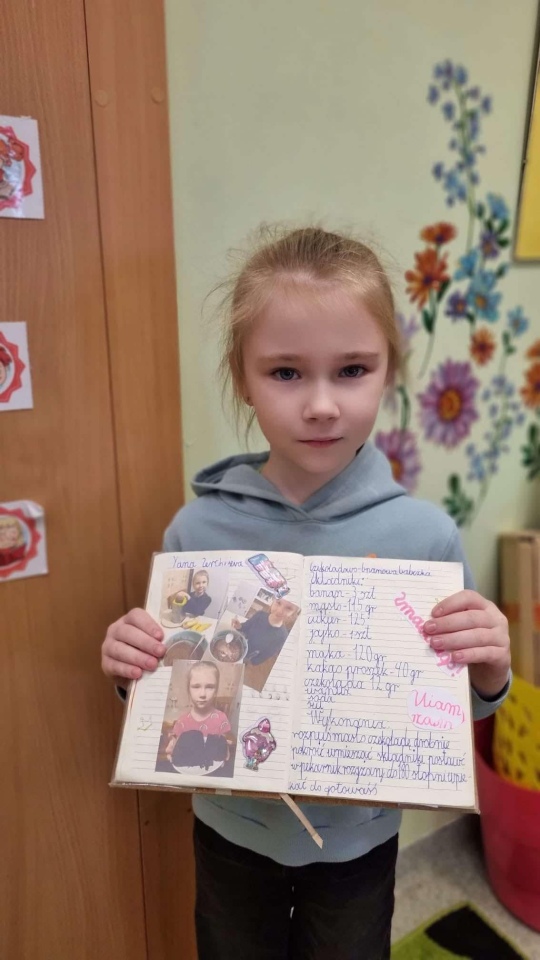 Yana
czekoladowo-bananowa babeczka
składniki:
banan - 3 szt
masło - 115 gr
cukier - 125
jajko - 1 szt
mąka - 120 gr
kakao proszek - 40 gr
czekolada 12 gr
wanilia
soda
sól
Wykonania
rozpuść masło czekoladę drobno
pokroić wmieszać składniki postawić
w piekarnik rozgrzany do 180 stopni i pie
kać do gotowość
Smacznego!
Miam